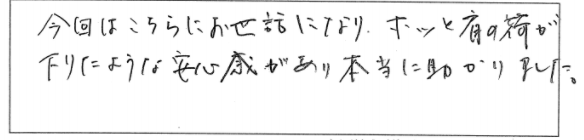 今回はこちらにお世話になり、ホッと肩の荷が
下りたような安心感があり本当に助かりました。